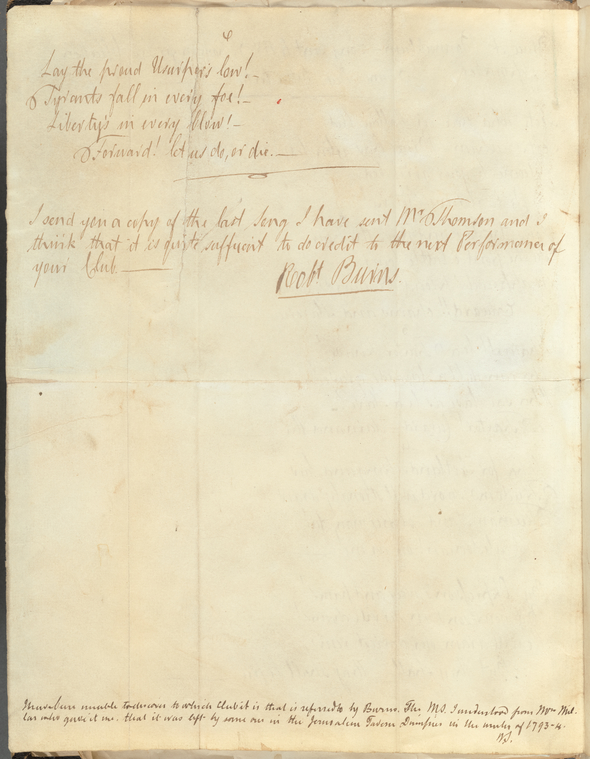 6
Lay the proud Usurpers low!—
Tyrants fall in every foe!—
Liberty's in every blow!—
Forward! let us do, or die.—
I send you a copy of the last Song I have sent Mr Thomson and I
think that it is quite sufficient to do credit to the next Performance of
your Club.—
Robt Burns.
unable to to which Club it is that is referred to by Burns. The MS. I understood from Mrs
who gave it me. that it was left by some one in the Jerusalem Tavern Dumfries in the winter of 1793-4.